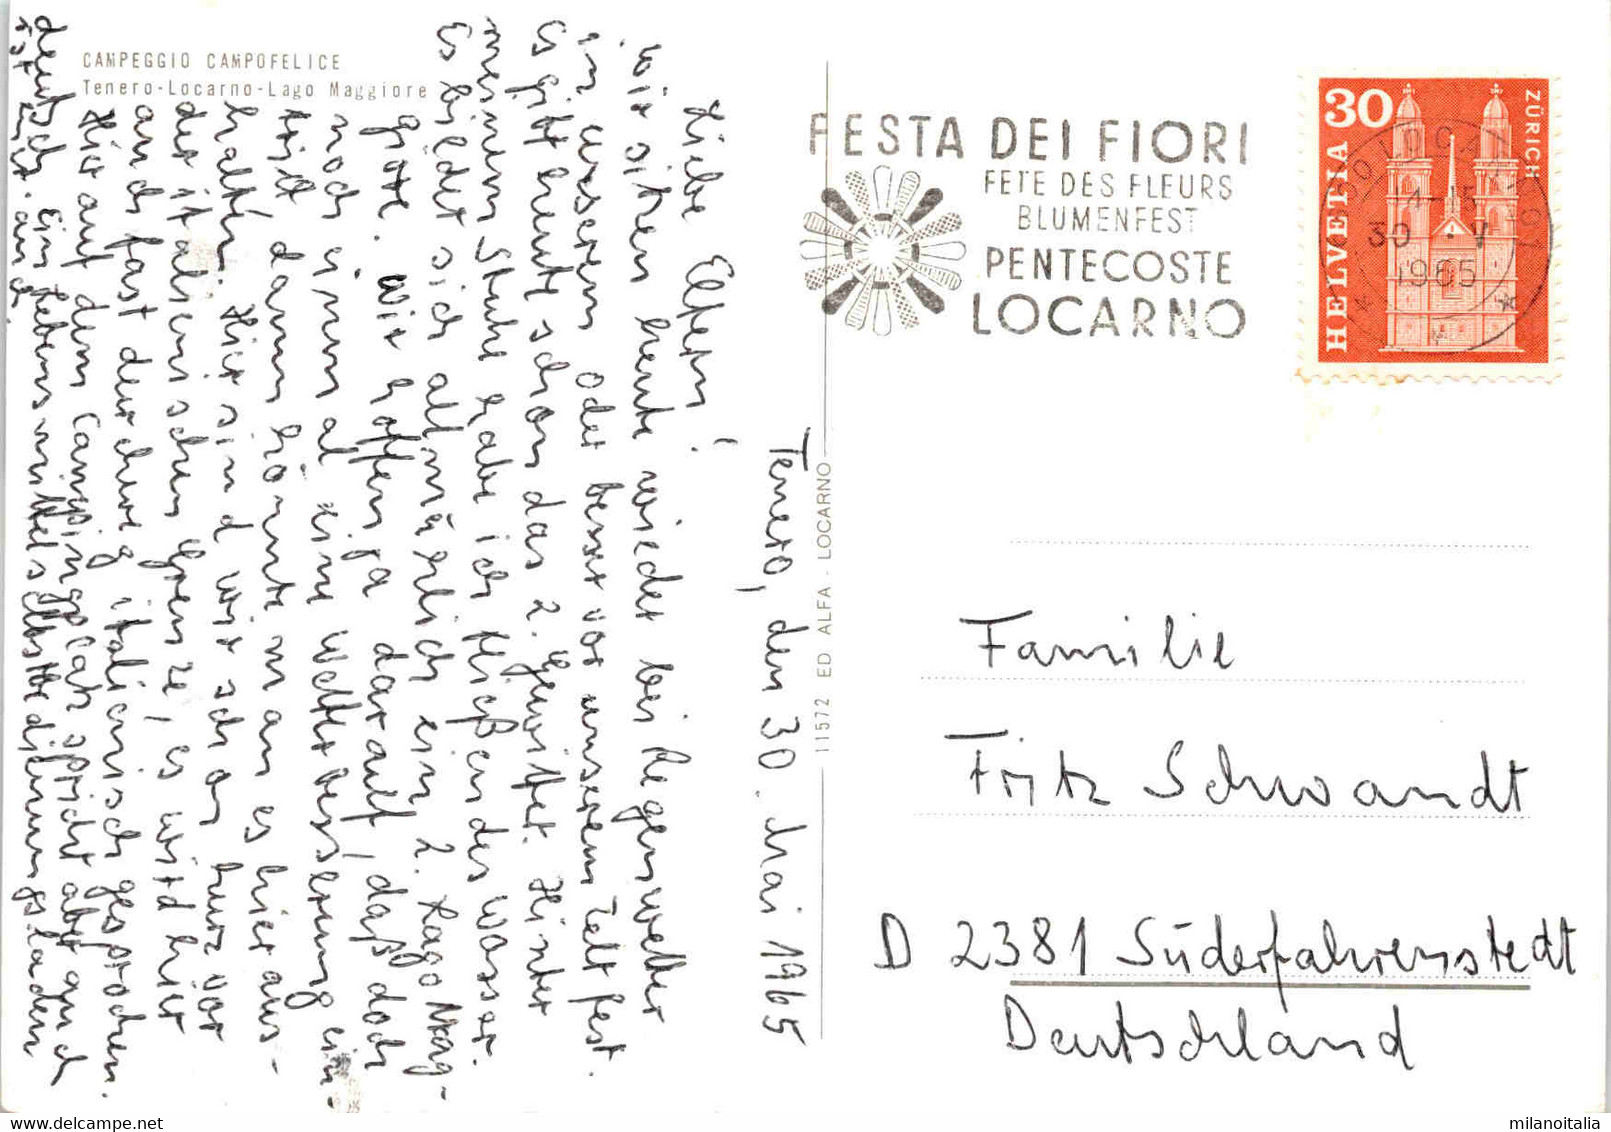 CAMPEGGIO CAMPOFELICE
Tenero-Locarno-Lago Maggiore
Tenero, den 30. Mai 1965
Liebe Eltern!
wir sitzen heute wieder bei Regenwetter
in unserem oder besser vor unserem Zelt fest.
Es gibt heute schon das 2. Gewitter. Hinter
meinem Stuhl habe ich fließendes Wasser.
Es bildet sich allmählich ein 2. Lago Mag-
giore. Wir hoffen ja darauf, daß doch
noch einmal eine Wetterbesserung ein-
tritt, dann könnte man es hier aus-
halten. Hier sind wir schon kurz vor
der italienischen Grenze, es wird hier
auch fast durchweg italienisch gesprochen.
Hier auf dem Campingplatz spricht aber auch
deutsch. Ein Lebensmittelselbstbedienungsladen
ist
11572 ED ALFA - LOCARNO
FESTA DEI FIORI
FETE DES FLEURS
BLUMENFEST
PENTECOSTE
LOCARNO
30
HELVETIA
ZÜRICH
30 · V
1965
Familie
Fritz Schwandt
D 2381 Süderfahrenstedt
Deutschland
milanoitalia